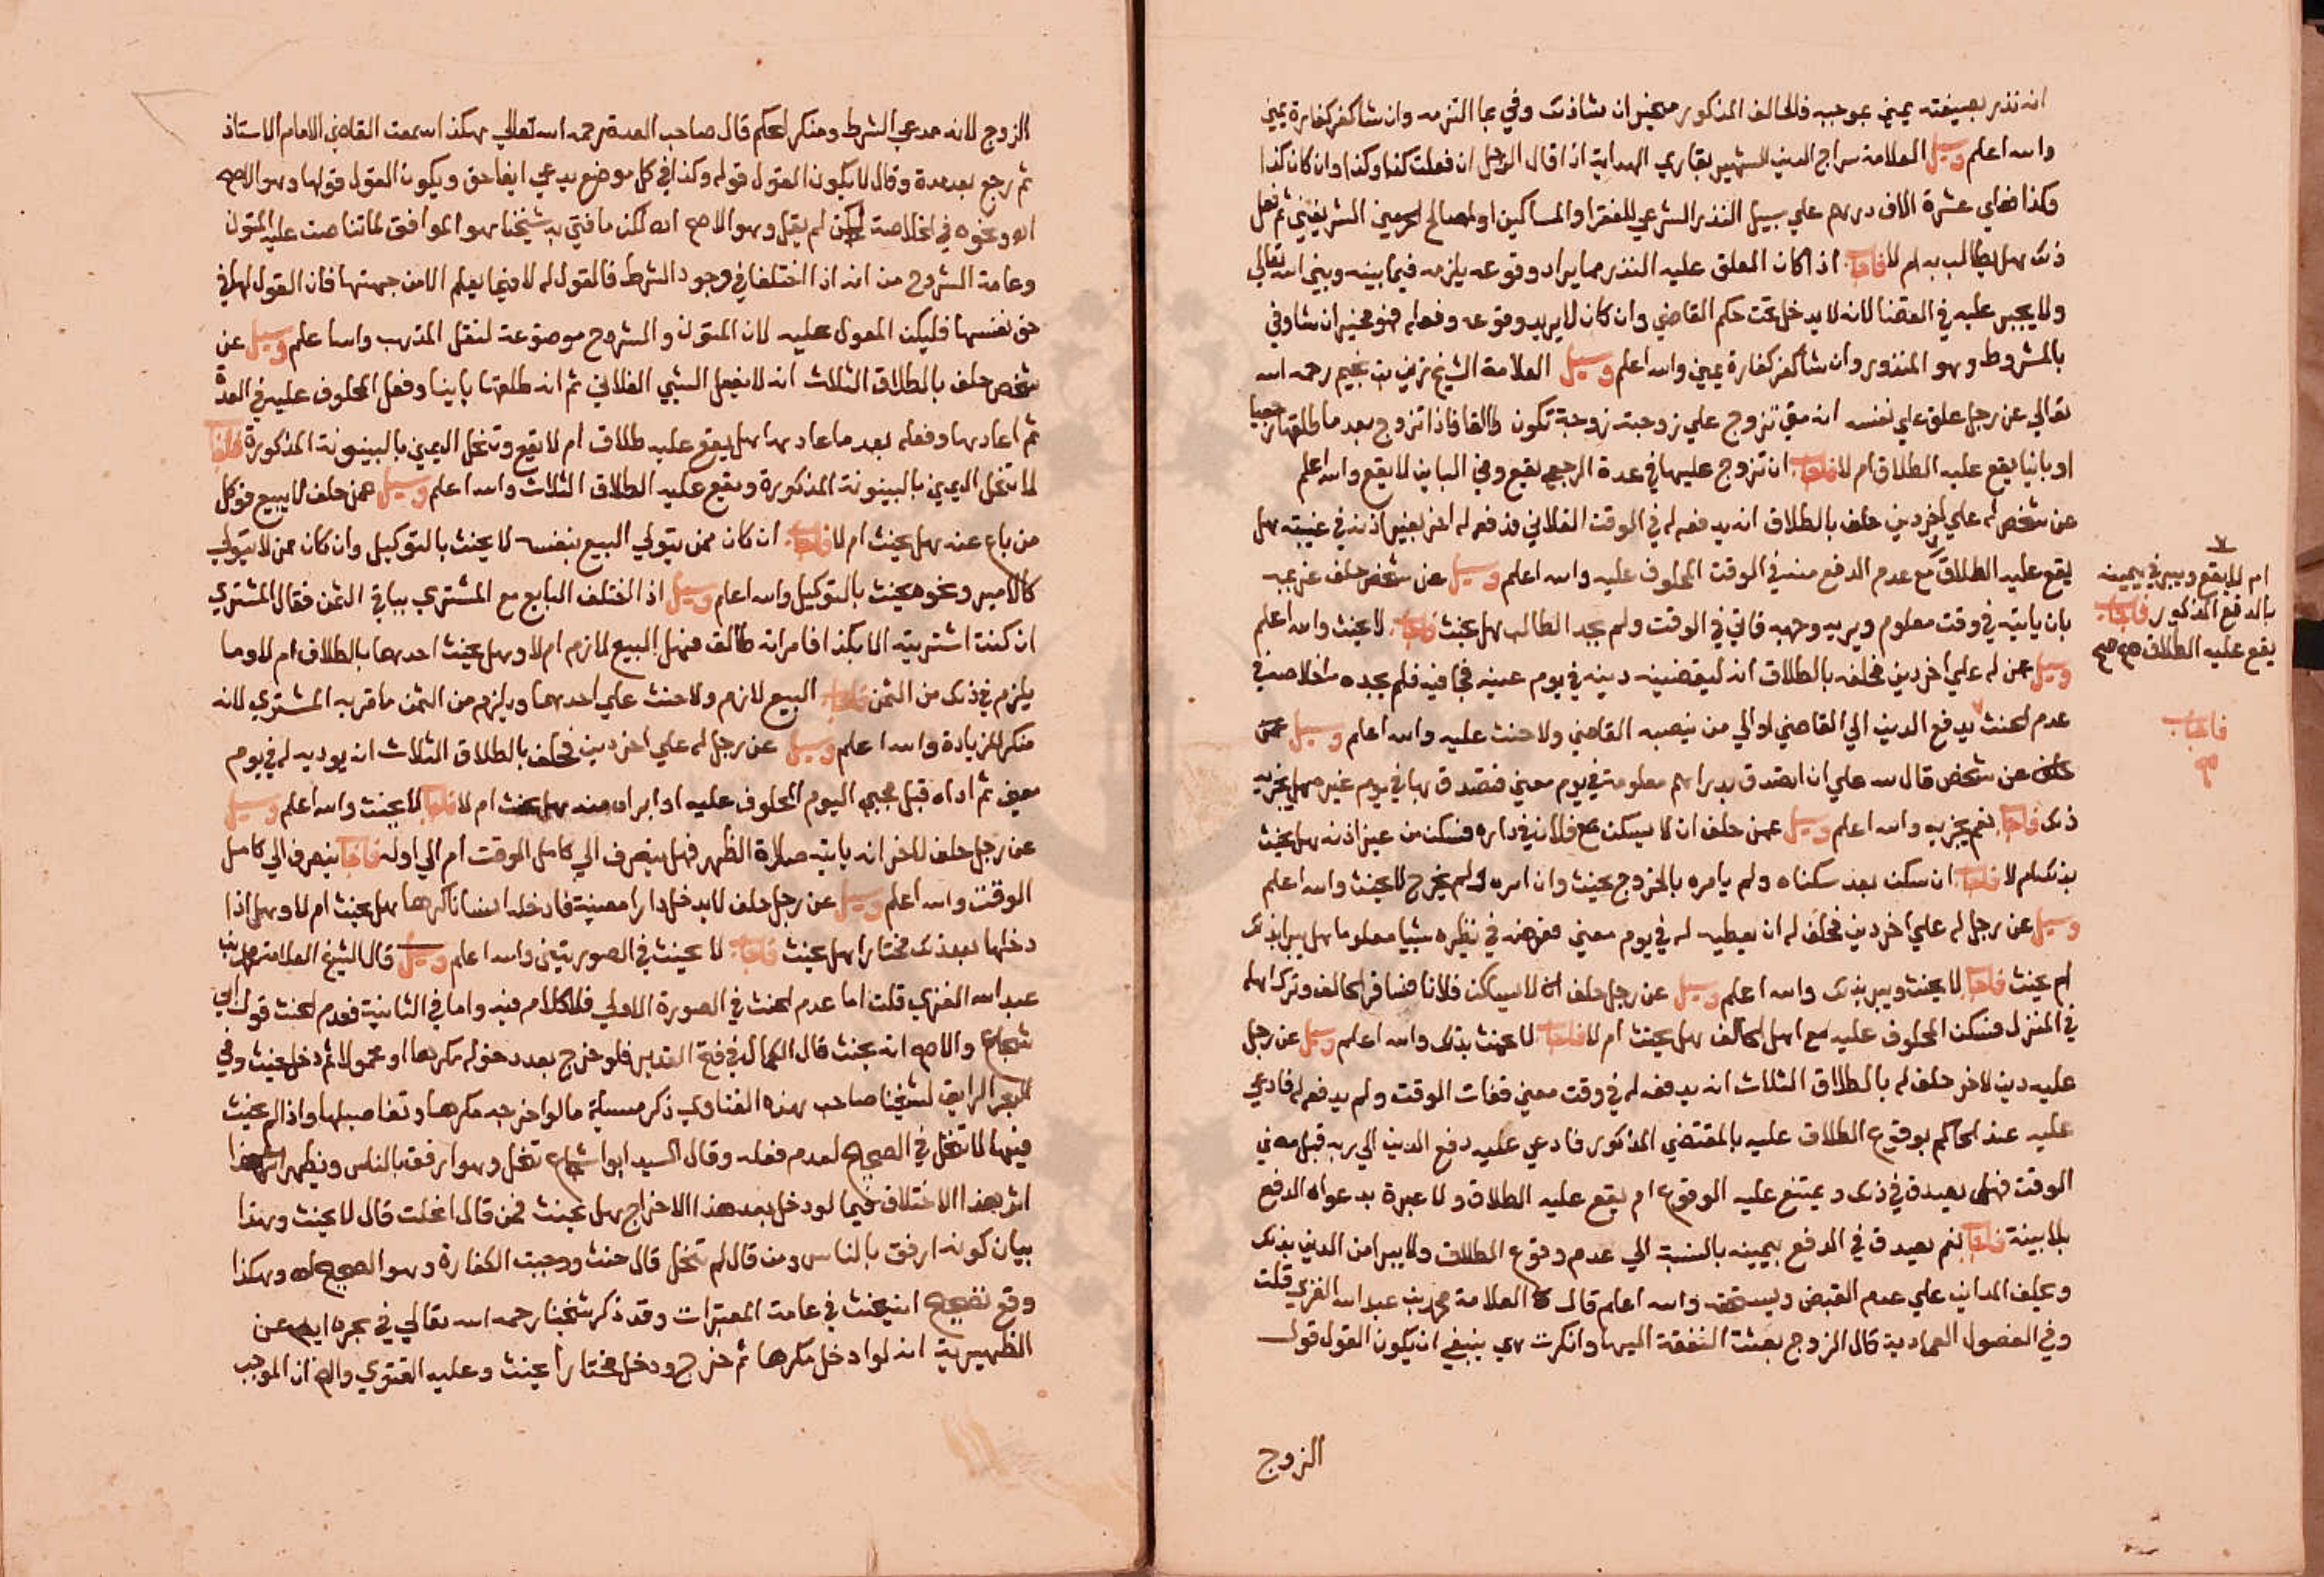 انه نذر بصيغته يمين بموجبه فالحالف المذكور مخير ان شاذلك وفي بما التزمه وان شا كفر كفارة يمين
والله اعلم وسيل العلامة سراج الدين الشهير بقاري الهداية اذا قال الرجل ان فعلت كذا وكذا وان كان كذا
وكذا فعلي عشرة الاف درهم علي سبيل النذر الشرعي للفقرا والمساكين او لمصالح الحرمين الشريفين ثم فعل
ذلك هل يطالب به ام لا فاجاب اذا كان المعلق عليه النذر مما يراد وقوعه يلزمه فيما بينه وبين الله تعالي
ولا يجبر عليه في القضا لانه لا يدخل تحت حكم القاضي وان كان لا يريد وقوعه وفعله فهو مخير ان شا وفي
بالمشروط وهو المنذور وان شا كفر كفارة يمين والله اعلم وسيل العلامة الشيخ زين بن نجيم رحمه الله
تعالي عن رجل علق علي نفسه انه متي تزوج علي زوجته زوجة تكون طالقا فاذا تزوج بعد ما طلقها رجعيا
او باينا يقع عليه الطلاق ام لا فاجاب ان تزوج عليها في عدة الرجعي يقع وفي الباين لا يقع والله اعلم
عن شخص له علي اخر دين حلف بالطلاق انه يدفعه له في الوقت الفلاني فدفعه له اخر بغير اذنه في غيبته هل
يقع عليه الطلاق مع عدم الدفع منه في الوقت المحلوف عليه والله اعلم وسيل عن شخص حلف غريمه
بان ياتيه في وقت معلوم ويريه وجهه فاتي في الوقت ولم يجد الطالب هل يحنث فاجاب لا يحنث والله اعلم
وسيل عمن له علي اخر دين فحلفه بالطلاق انه ليقضينه دينه في يوم عينه فجا فيه فلم يجده ما خلاصه في
عدم الحنث يدفع الدين الي القاضي او الي من ينصبه القاضي ولا حنث عليه والله اعلم وسيل
عن شخص قال لله علي ان اتصدق بدراهم معلومة في يوم معين فتصدق بها في يوم غيره هل يجزيه
ذلك فاجاب نعم يجزيه والله اعلم وسيل عمن حلف ان لا يسكن مع فلان في داره فسكن من غير اذنه هل يحنث
بذلك ام لا فاجاب ان سكن بعد سكناه ولم يامره بالخروج يحنث وان امره ولم يخرج لا يحنث والله اعلم
وسيل عن رجل له علي اخر دين فحلف له ان يعطيه له في يوم معين فعوضه في نظيره شيا معلوما هل يبر بذلك
ام يحنث فاجاب لا يحنث ويبر بذلك والله اعلم وسيل عن رجل حلف انه لا يساكن فلانا فسافر الحالف وترك اهله
في المنزل فسكن المحلوف عليه مع اهل الحالف هل يحنث ام لا فاجاب لا يحنث بذلك والله اعلم وسيل عن رجل
عليه دين لاخر حلف له بالطلاق الثلاث انه يدفعه له في وقت معين ففات الوقت ولم يدفعه له فادعي
عليه عند الحاكم بوقوع الطلاق عليه بالمقتضي المذكور فادعي عليه دفع الدين الي ربه قبل مضي
الوقت فهل يصدق في ذلك ويمتنع عليه الوقوع ام يقع عليه الطلاق ولا عبرة بدعواه الدفع
بلا بينة فاجاب نعم يصدق في الدفع بيمينه بالنسبة الي عدم وقوع الطلاق ولا يبرا من الدين بذلك
ويحلف الداين علي عدم القبض ويستحقه والله اعلم قال العلامة محمد بن عبد الله الغزي قلت
وفي الفصول العمادية قال الزوج بعثت النفقة اليها وانكرت هي ينبغي ان يكون القول قول
الزوج
ام لا يقع ويبر في يمينه
بالدفع المذكور فاجاب
يقع عليه الطلاق صح صح
فاجاب
الزوج لانه مدعي الشرط ومنكر الحكم قال صاحب العدة رحمه الله تعالي هكذا سمعت القاضي الامام الاستاذ
ثم رجع بعد مدة وقال لا يكون القول قوله وكذا في كل موضع يدعي ايفا حق ويكون القول قولها وهو الاصح
اه ونحوه في الخلاصة لكن لم يقل وهو الاصح اه لكن ما افتي به شيخنا هو الموافق لما تناصت عليه المتون
وعامة الشروح من انه اذا اختلفا في وجود الشرط فالقول له لا فيما يعلم الا من جهتها فان القول لها في
حق نفسها فليكن المعول عليه لان المتون والشروح موضوعة لنقل المذهب والله اعلم وسيل عن
شخص حلف بالطلاق الثلاث انه لا يفعل الشي الفلاني ثم انه طلقها باينا وفعل المحلوف عليه في العدة
ثم اعادها وفعله بعد ما عادها هل يقع عليه طلاق ام لا يقع وتنحل اليمين بالبينونة المذكورة فاجاب
لا تنحل اليمين بالبينونة المذكورة ويقع عليه الطلاق الثلاث والله اعلم وسيل عمن حلف لا يبيع فوكل
من باع عنه هل يحنث ام لا فاجاب ان كان ممن يتولي البيع بنفسه لا يحنث بالتوكيل وان كان ممن لا يتولي
كالامير ونحوه يحنث بالتوكيل والله اعلم وسيل اذا اختلف البايع مع المشتري بباقي الثمن فقال المشتري
ان كنت اشتريته الا بكذا فامراته طالق فهل البيع لازم ام لا وهل يحنث احدهما بالطلاق ام لا وما
يلزم في ذلك من الثمن فاجاب البيع لازم ولا حنث علي احدهما ويلزم من الثمن ما اقر به المشتري لانه
منكر للزيادة والله اعلم وسيل عن رجل له علي اخر دين فحلف بالطلاق الثلاث انه يوديه له في يوم
معين ثم اداه قبل مجي اليوم المحلوف عليه او ابراه منه هل يحنث ام لا فاجاب لا يحنث والله اعلم وسيل
عن رجل حلف لاخر انه ياتيه صلاة الظهر فهل ينصرف الي كامل الوقت ام الي اوله فاجاب ينصرف الي كامل
الوقت والله اعلم وسيل عن رجل حلف لا يدخل دارا معينة فادخله انسانا كرها هل يحنث ام لا وهل اذا
دخلها بعد ذلك مختارا هل يحنث فاجاب لا يحنث في الصورتين والله اعلم وسيل قال الشيخ العلامة محمد بن
عبد الله الغزي قلت اما عدم الحنث في الصورة الاولي فلا كلام فيه واما في الثانية فعدم الحنث قول ابي
شجاع والاصح انه يحنث قال الكمال في فتح القدير فلو خرج بعد دخوله مكرها او محمولا ثم دخل يحنث وفي
البحر الرايق لشيخنا صاحب هذه الفتاوي ذكر مسيلة ما لو اخرجه مكرها وتفاصيلها واذا لم يحنث
فيها لا تنحل في الصحيح لعدم فعله وقال السيد ابو شجاع تنحل وهو ارفق بالناس ويظهر
اثر هذا الاختلاف فيما لو دخل بعد هذا الاخراج هل يحنث فمن قال انحلت قال لا يحنث وهذا
بيان كونه ارفق بالناس ومن قال لم تنحل قال حنث ووجبت الكفارة وهو الصحيح اه وهكذا
وقع تصحيح انه يحنث في عامة المعتبرات وقد ذكر شيخنا رحمه الله تعالي في بحره ايضا عن
الظهيرية انه لو ادخل مكرها ثم خرج ودخل مختارا يحنث وعليه الفتوي